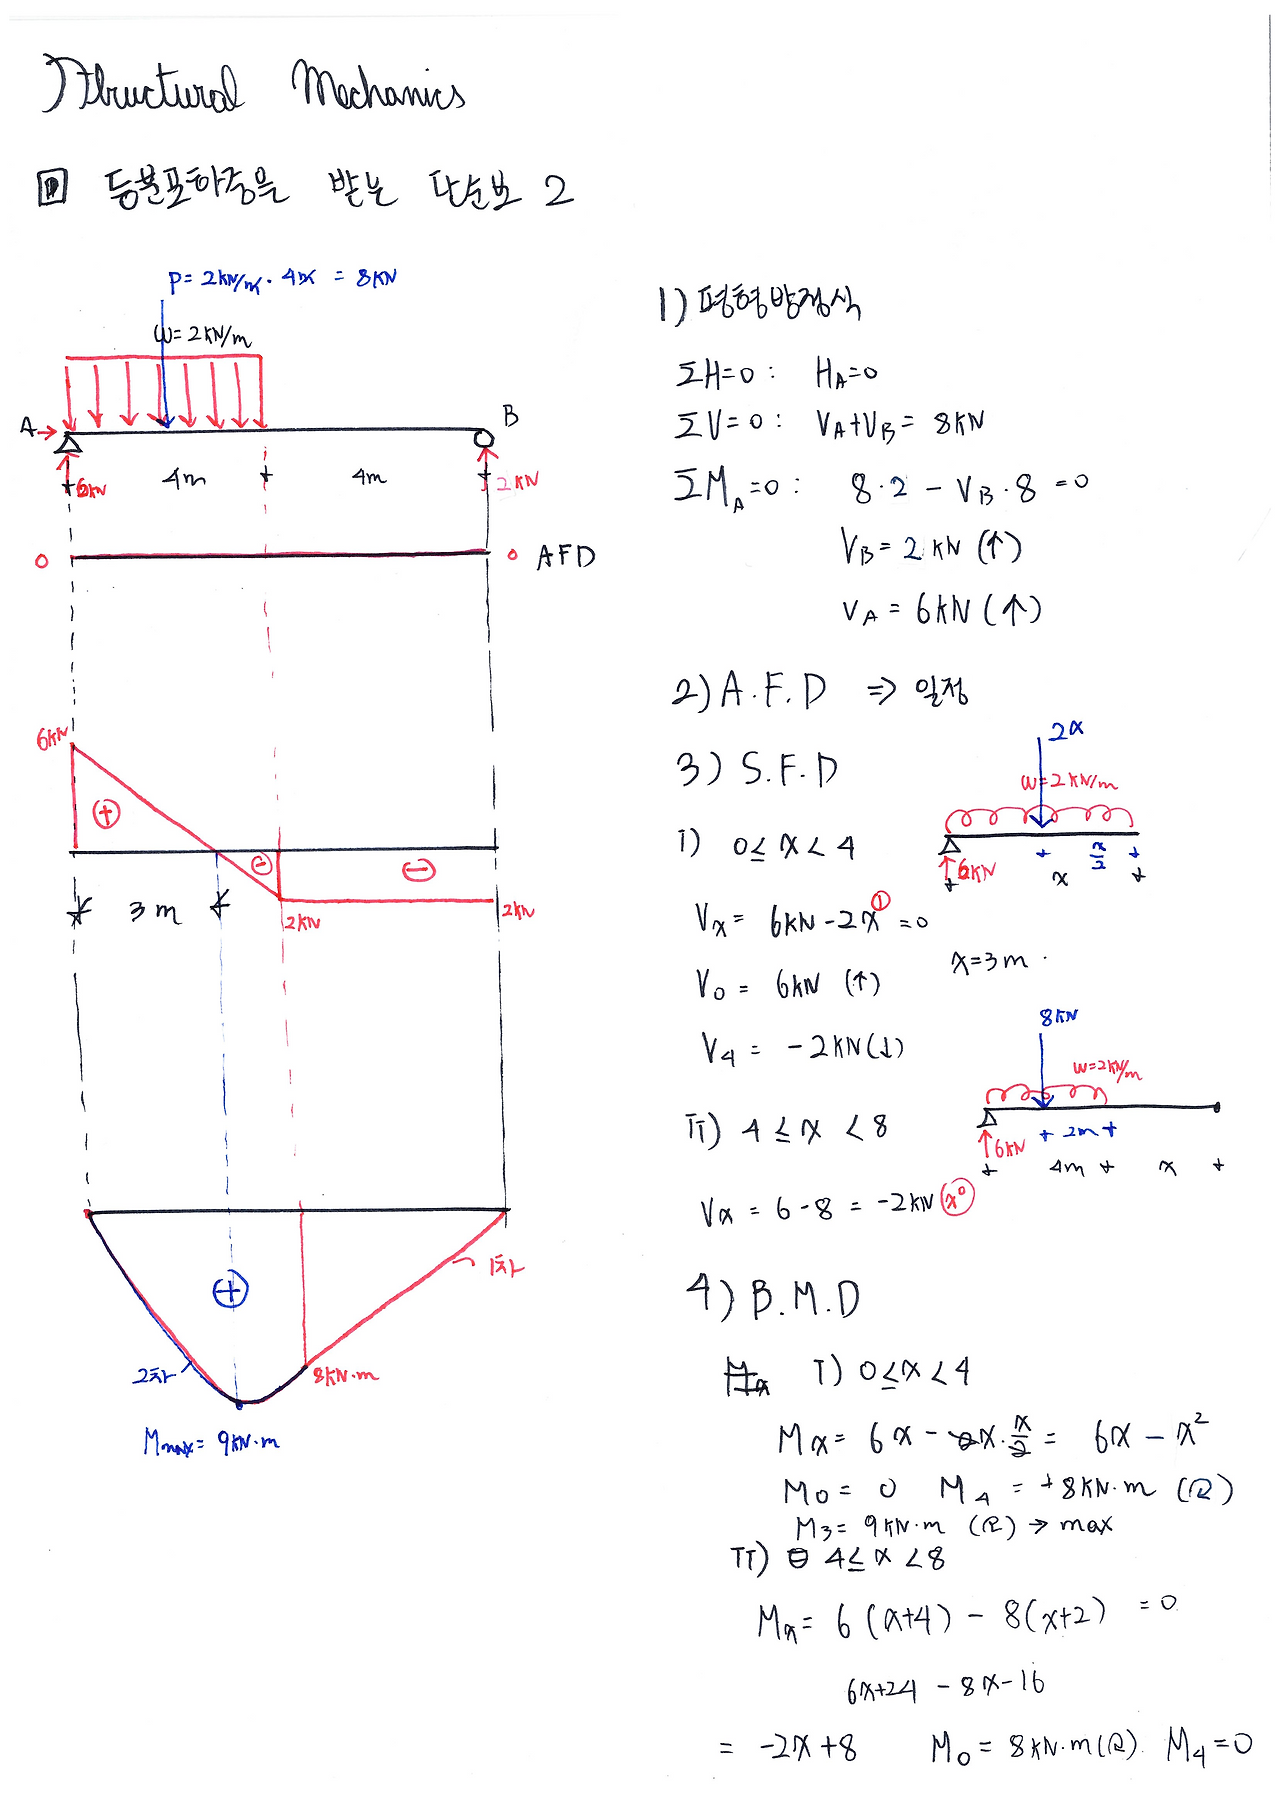 Structural Mechanics
▣ 등분포하중을 받는 단순보 2
P= 2kN/m · 4m = 8kN
w= 2kN/m
A
B
6kN
4m
4m
2kN
0
0 AFD
6kN
+
-
-
3m
2kN
2kN
+
1차
2차
8kN·m
Mmax= 9kN·m
1) 평형방정식
ΣH=0 : HA=0
ΣV=0 : VA+VB= 8kN
ΣMA=0 : 8·2 - VB·8 =0
VB= 2kN (↑)
VA = 6kN (↑)
2) A.F.D ⇒ 일정
3) S.F.D
2x
w=2kN/m
6kN
x/2
x
I) 0≤x<4
Vx= 6kN-2x① =0
x=3m.
V0 = 6kN (↑)
V4 = -2kN(↓)
8kN
w=2kN/m
6kN
2m
4m
x
II) 4≤x<8
Vx = 6-8 = -2kN x⁰
4) B.M.D
Mx I) 0≤x<4
Mx= 6x - 2x·x/2 = 6x-x²
M0= 0 M4 = +8kN·m (R)
M3= 9kN·m (R) → max
II) 4≤x<8
Mx= 6(x+4) - 8(x+2) =0
6x+24 - 8x-16
= -2x+8 M0= 8kN·m(R). M4=0